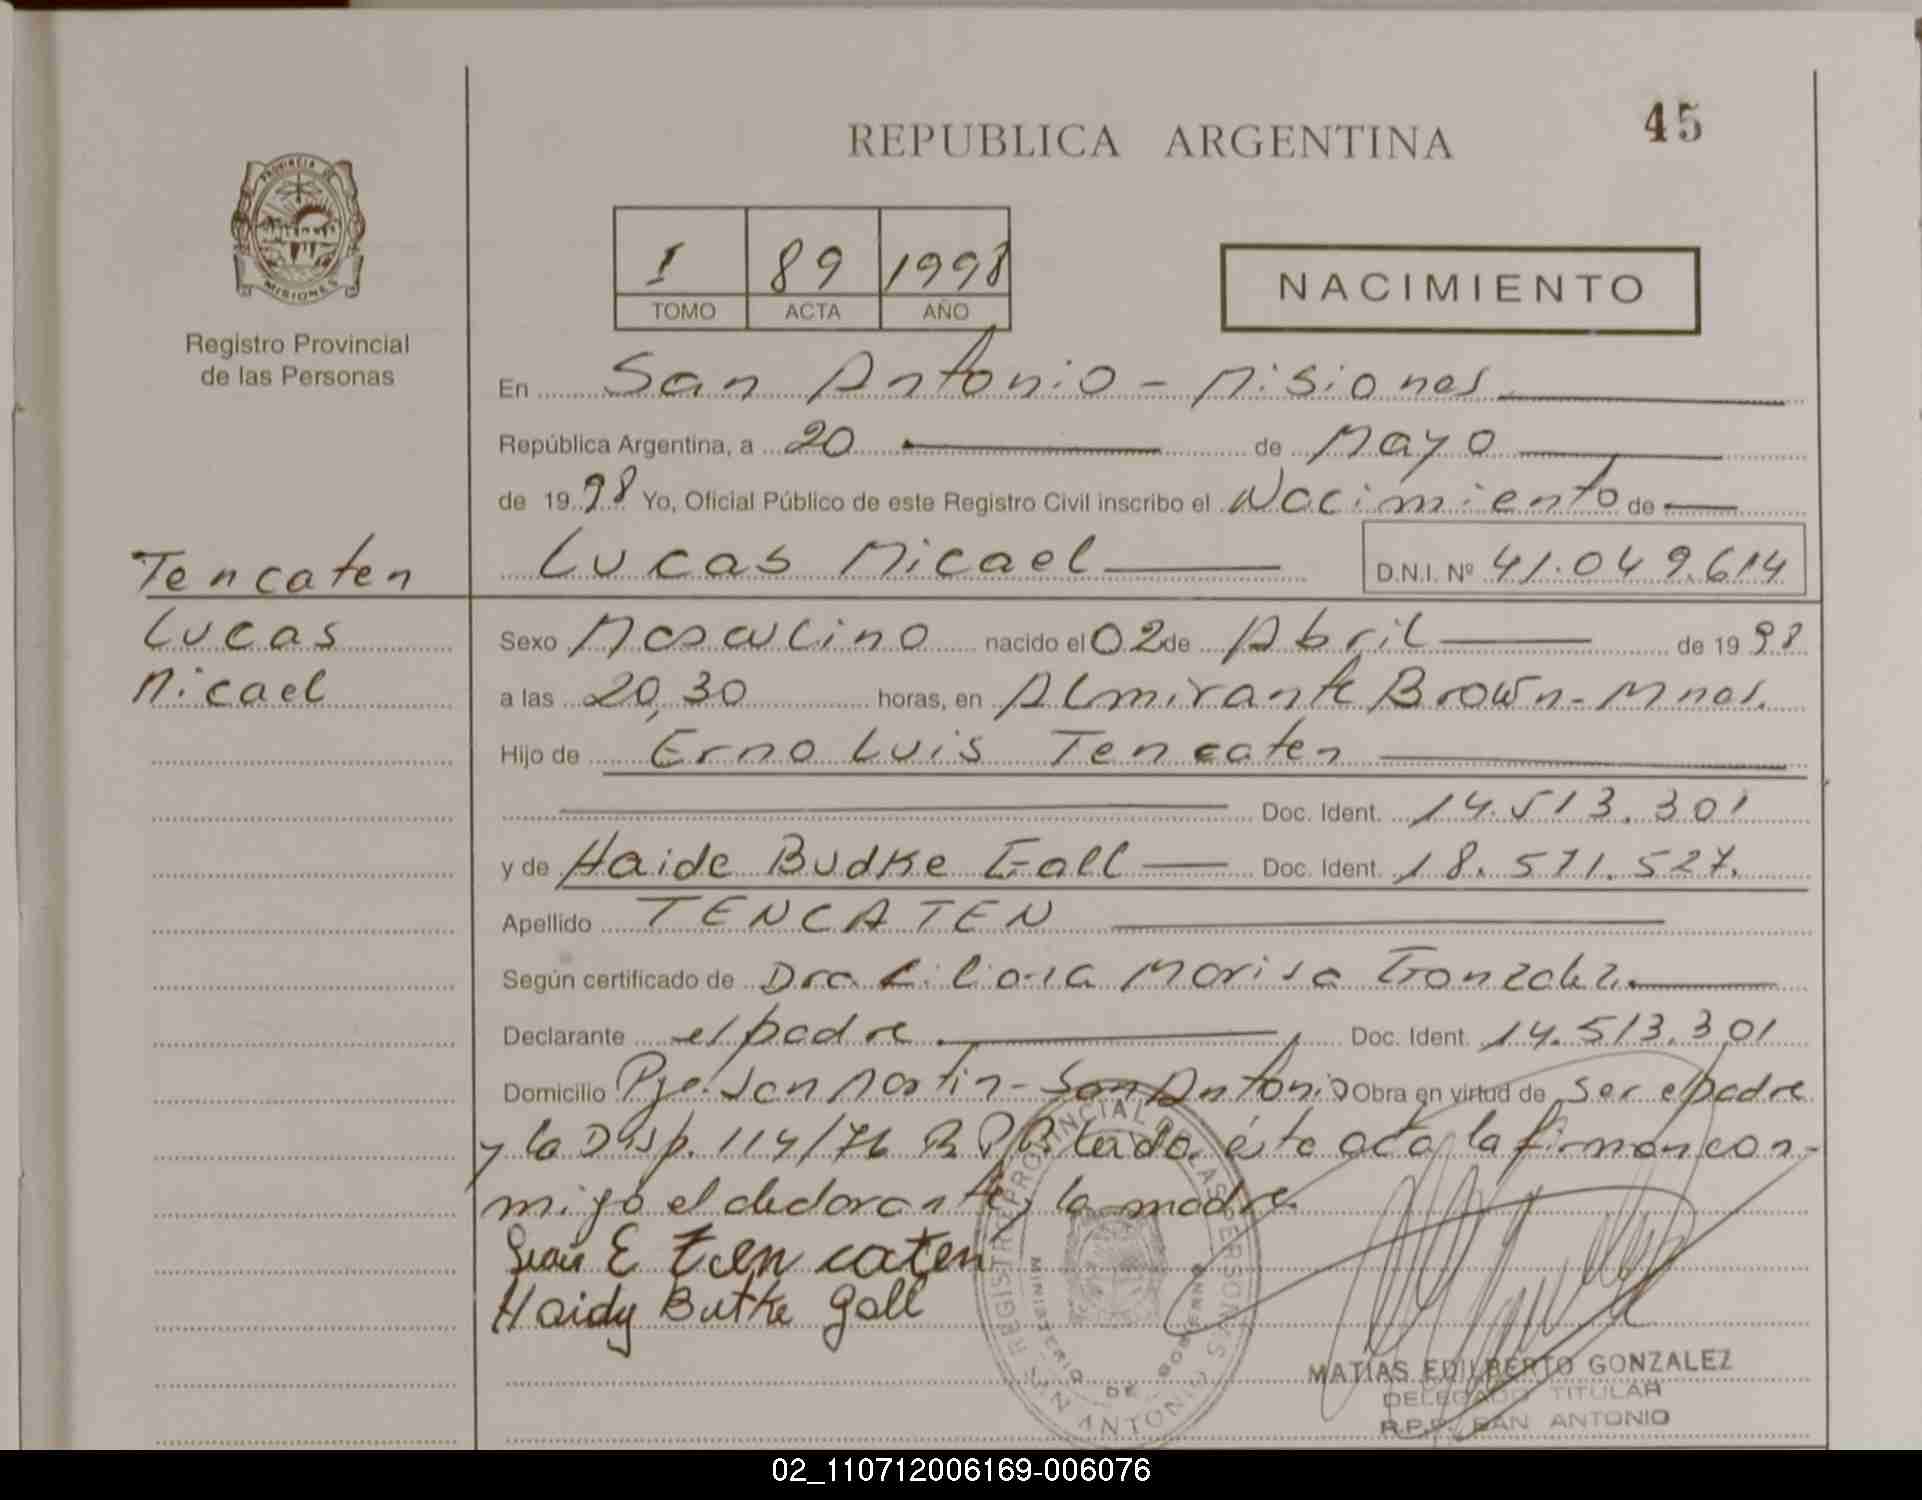 45
REPUBLICA ARGENTINA
PROVINCIA DE
MISIONES
Registro Provincial
de las Personas
I 89 1998
TOMO ACTA AÑO
NACIMIENTO
En San Antonio - Misiones
República Argentina, a 20 de Mayo
de 1998 Yo, Oficial Público de este Registro Civil inscribo el Nacimiento de
Lucas Micael D.N.I. Nº 41.049.614
Tencaten
Lucas
Micael
Sexo Masculino nacido el 02 de Abril de 1998
a las 20,30 horas, en Almirante Brown - Mnes.
Hijo de Erno Luis Tencaten
Doc. Ident. 14.513.301
y de Haide Budke Gall Doc. Ident. 18.571.527.
Apellido TENCATEN
Según certificado de Dra. Liliana Marisa Gonzalez.
Declarante el padre Doc. Ident. 14.513.301
Domicilio Pje. San Martin - San Antonio Obra en virtud de ser el padre
y la Disp. 114/76 Leida éste acta la firman con-
migo el declarante, la madre.
E ten caten
Haidy Butke gall
REGISTRO PROVINCIAL DE LAS PERSONAS
MINISTERIO DE GOBIERNO
SAN ANTONIO
MATIAS EDILBERTO GONZALEZ
DELEGADO TITULAR
R.P.P. SAN ANTONIO
02_110712006169-006076